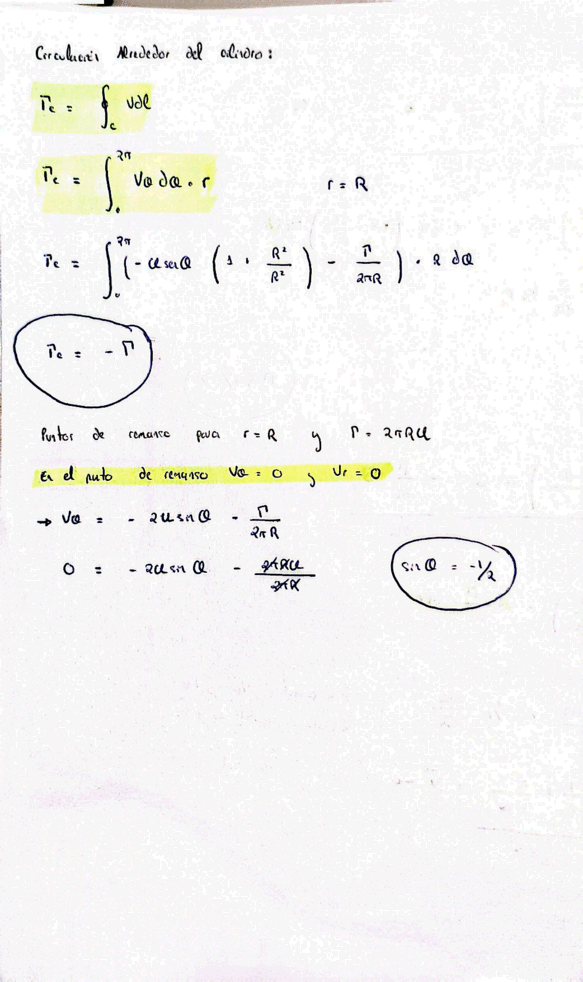 Circulación Alrededor del cilindro:
Γc = ∮c Vdl
Γc = ∫₀^2π Vθ dθ · r r = R
Γc = ∫₀^2π (- U senθ (1 + R²/R²) - Γ/2πR) · R dθ
Γc = - Γ
Puntos de remanso para r = R y Γ = 2πRU
En el punto de remanso Vθ = 0 y Vr = 0
→ Vθ = - 2U sin θ - Γ/2πR
0 = - 2U sin θ - 2πRU/2πR sin θ = -1/2